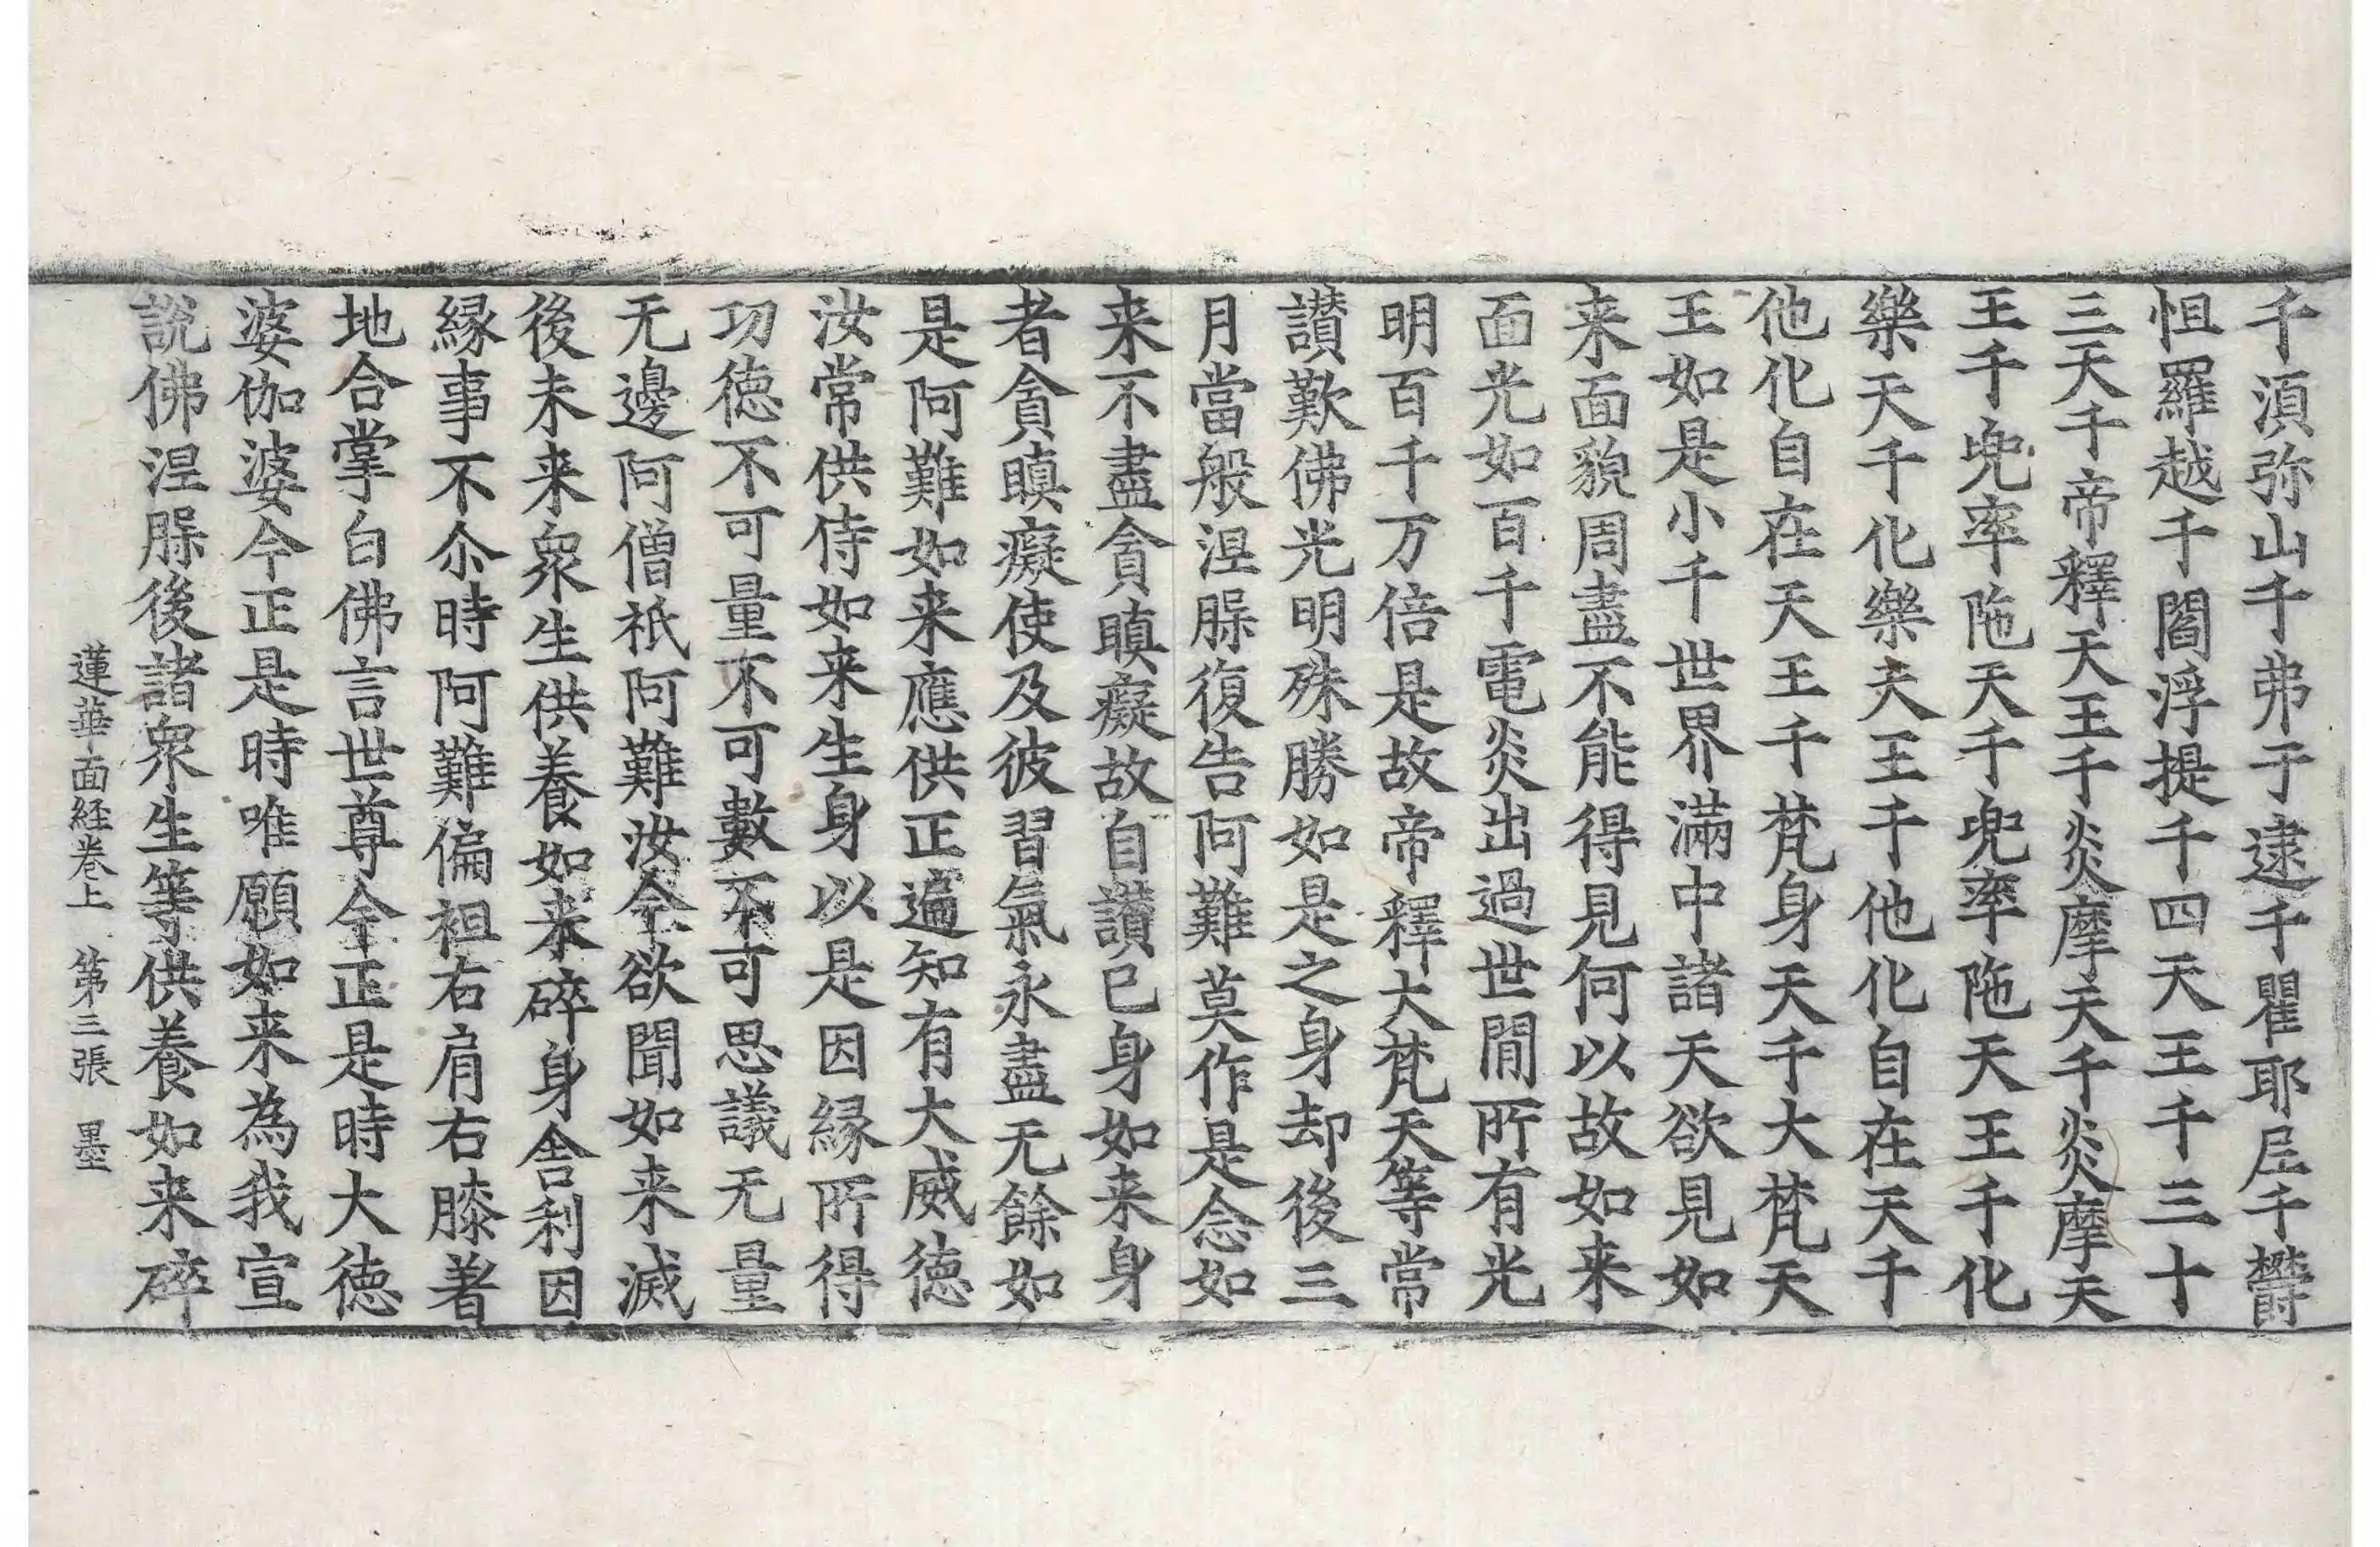 千湏弥山千弗于逮千瞿耶𡰱千欝
怛羅越千閻浮提千四天王千三十
三天千帝釋天王千炎摩天千炎摩天
王千兜率陁天千兜率陁天王千化
樂天千化樂天王千他化自在天千
他化自在天王千梵身天千大梵天
王如是小千世界滿中諸天欲見如
来面貌周盡不能得見何以故如来
面光如百千電炎出過世間所有光
明百千万倍是故帝釋大梵天等常
讃歎佛光明殊勝如是之身却後三
月當般涅膟復告阿難莫作是念如
来不盡貪瞋癡故自讃已身如来身
者貪瞋癡使及彼習氣永盡无餘如
是阿難如来應供正遍知有大威徳
汝常供侍如来生身以是因縁所得
功徳不可量不可數不可思議无量
无邊阿僧祇阿難汝今欲聞如来滅
後未来衆生供養如来碎身舎利因
縁事不尒時阿難偏袒右肩右膝著
地合掌白佛言世尊今正是時大徳
婆伽婆今正是時唯願如来為我宣
說佛涅膟後諸衆生等供養如来碎
蓮華面経卷上 第三張 墨